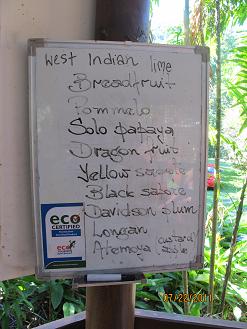 West Indian lime
Breadfruit
Pommelo
Solo papaya
Dragon fruit
Yellow sapote
Black sapote
Davidson plum
Longan
Atemoya custard apple
eco
CERTIFIED
eco
07/22/2011